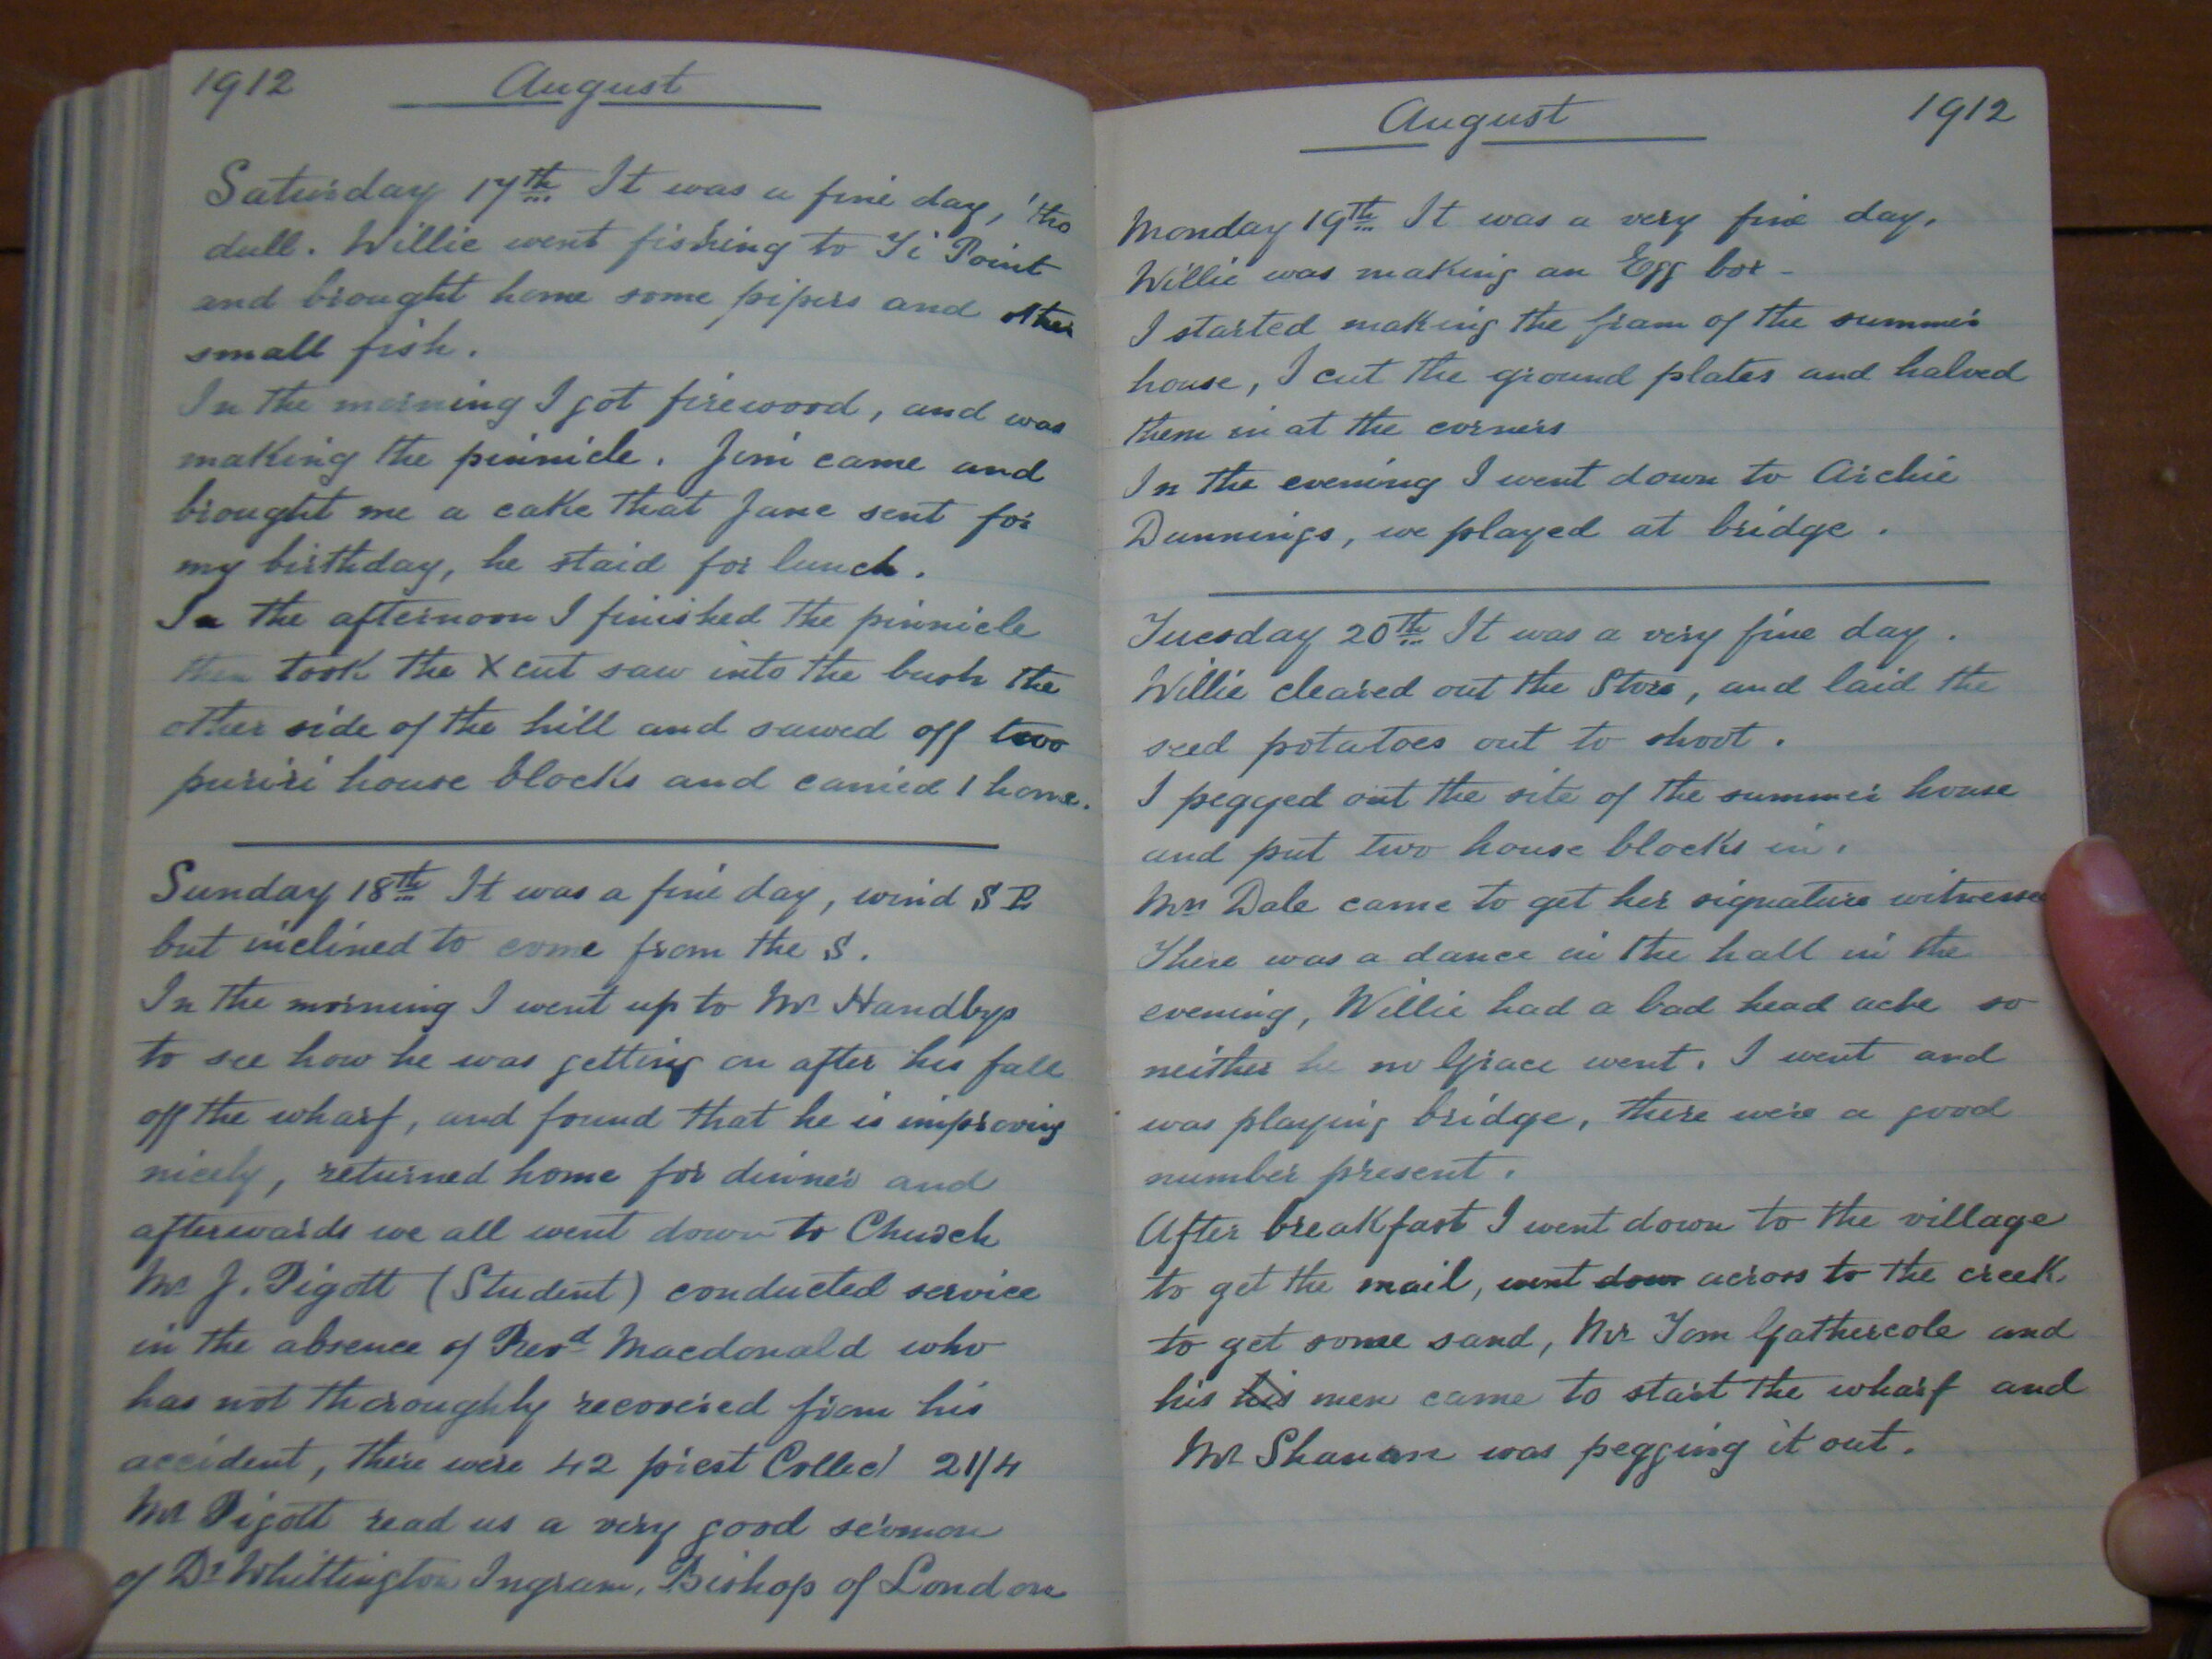 1912 August
Saturday 17th It was a fine day, 'tho
dull. Willie went fishing to Ti Point
and brought home some pipers and other
small fish.
In the morning I got firewood, and was
making the pinnicle. Jim came and
brought me a cake that Jane sent for
my birthday, he staid for lunch.
In the afternoon I finished the pinnicle
then took the X cut saw into the bush the
other side of the hill and sawed off two
puriri house blocks and carried 1 home.
Sunday 18th It was a fine day, wind S E
but inclined to come from the S.
In the morning I went up to Mr Handbys
to see how he was getting on after his fall
off the wharf, and found that he is improving
nicely, returned home for dinner and
afterwards we all went down to Church
Mr J. Pigott (Student) conducted service
in the absence of Revd Macdonald who
has not thoroughly recovered from his
accident, there were 42 prest Collec 21/4
Mr Pigott read us a very good sermon
of Dr Whittington Ingram, Bishop of London
August 1912
Monday 19th It was a very fine day.
Willie was making an Egg box -
I started making the fram of the summer
house, I cut the ground plates and halved
them in at the corners
In the evening I went down to Archie
Dunnings, we played at bridge.
Tuesday 20th It was a very fine day.
Willie cleared out the Store, and laid the
seed potatoes out to shoot.
I pegged out the site of the summer house
and put two house blocks in.
Mrs Dale came to get her signature witnessed
There was a dance in the hall in the
evening, Willie had a bad head ache so
neither he no Grace went. I went and
was playing bridge, there were a good
number present.
After breakfast I went down to the village
to get the mail, went down across to the creek
to get some sand, Mr Tom Gathercole and
his his men came to start the wharf and
Mr Shanan was pegging it out.